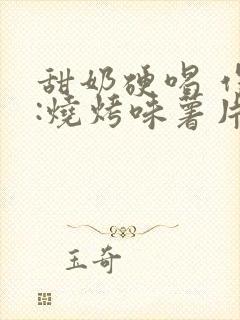 甜奶硬唱
:燒烤味薯片
玉奇